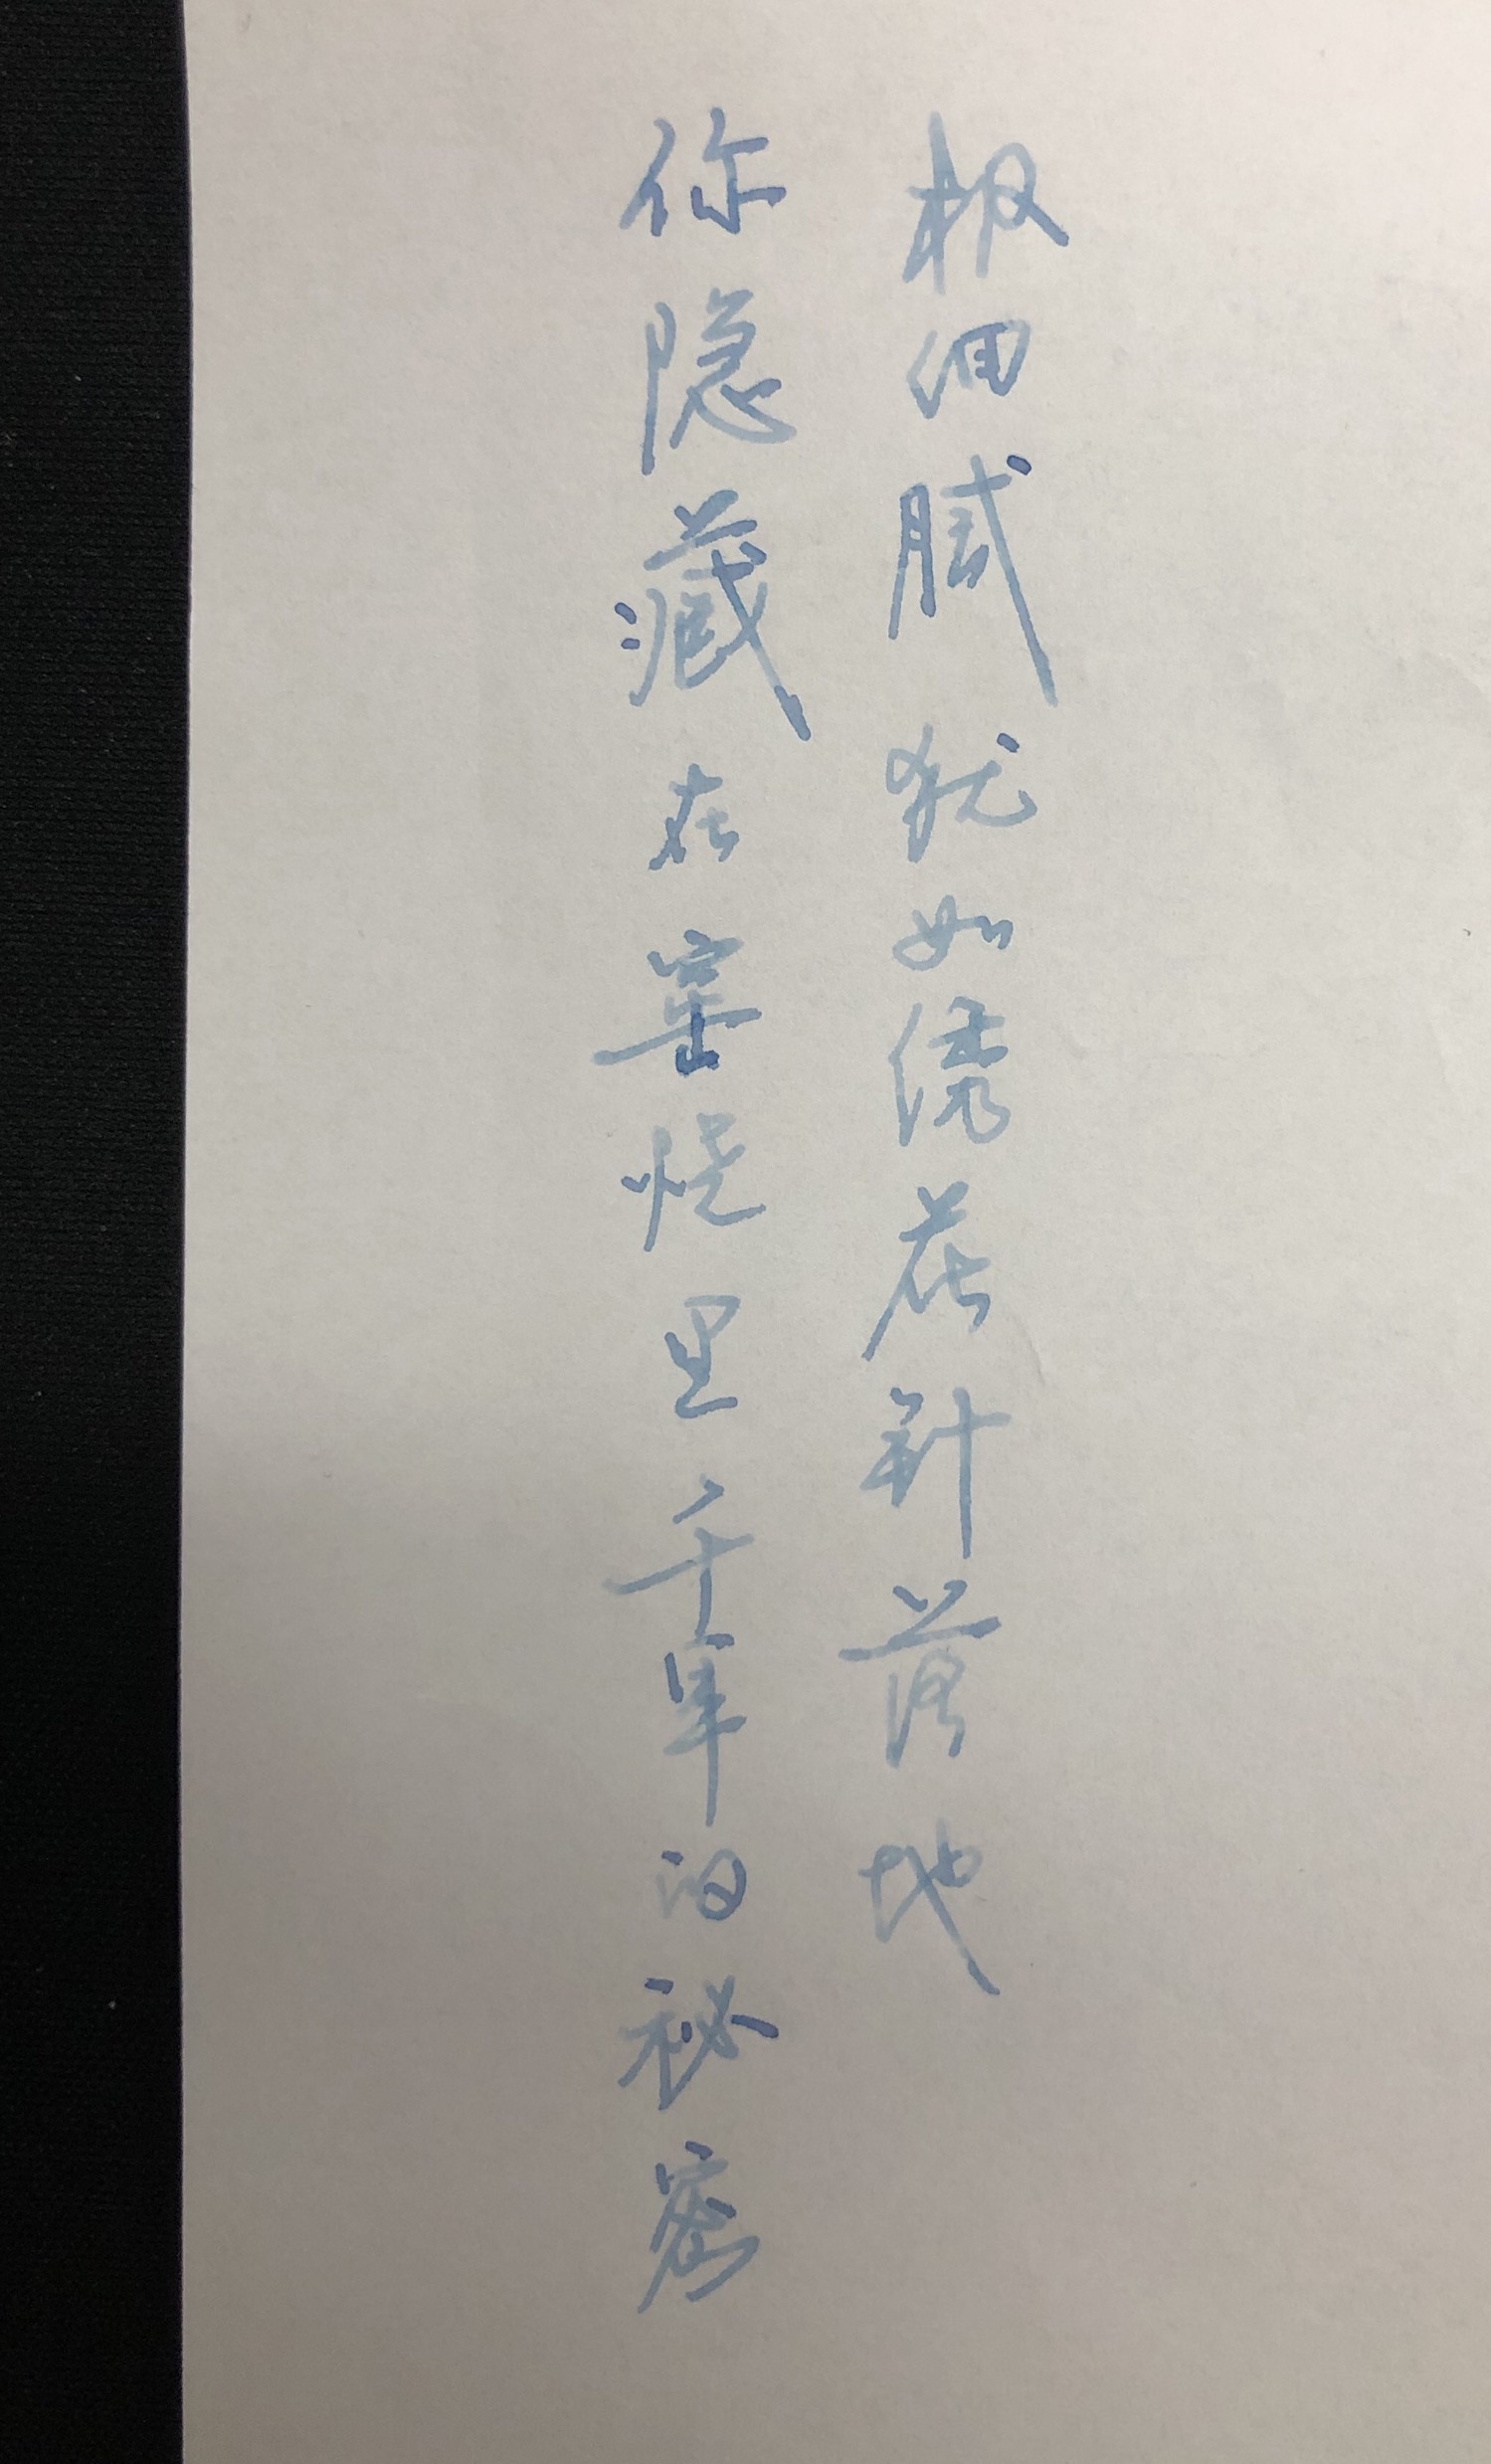 极细腻犹如绣花针落地
你隐藏在窑烧里千年的秘密